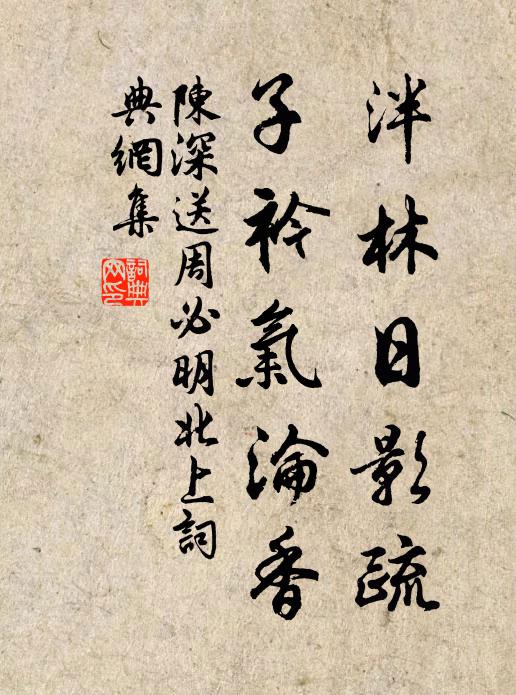 泮林日影疏
子衿氣淪香
陳深送周必明北上詞
典網集
詞典网印